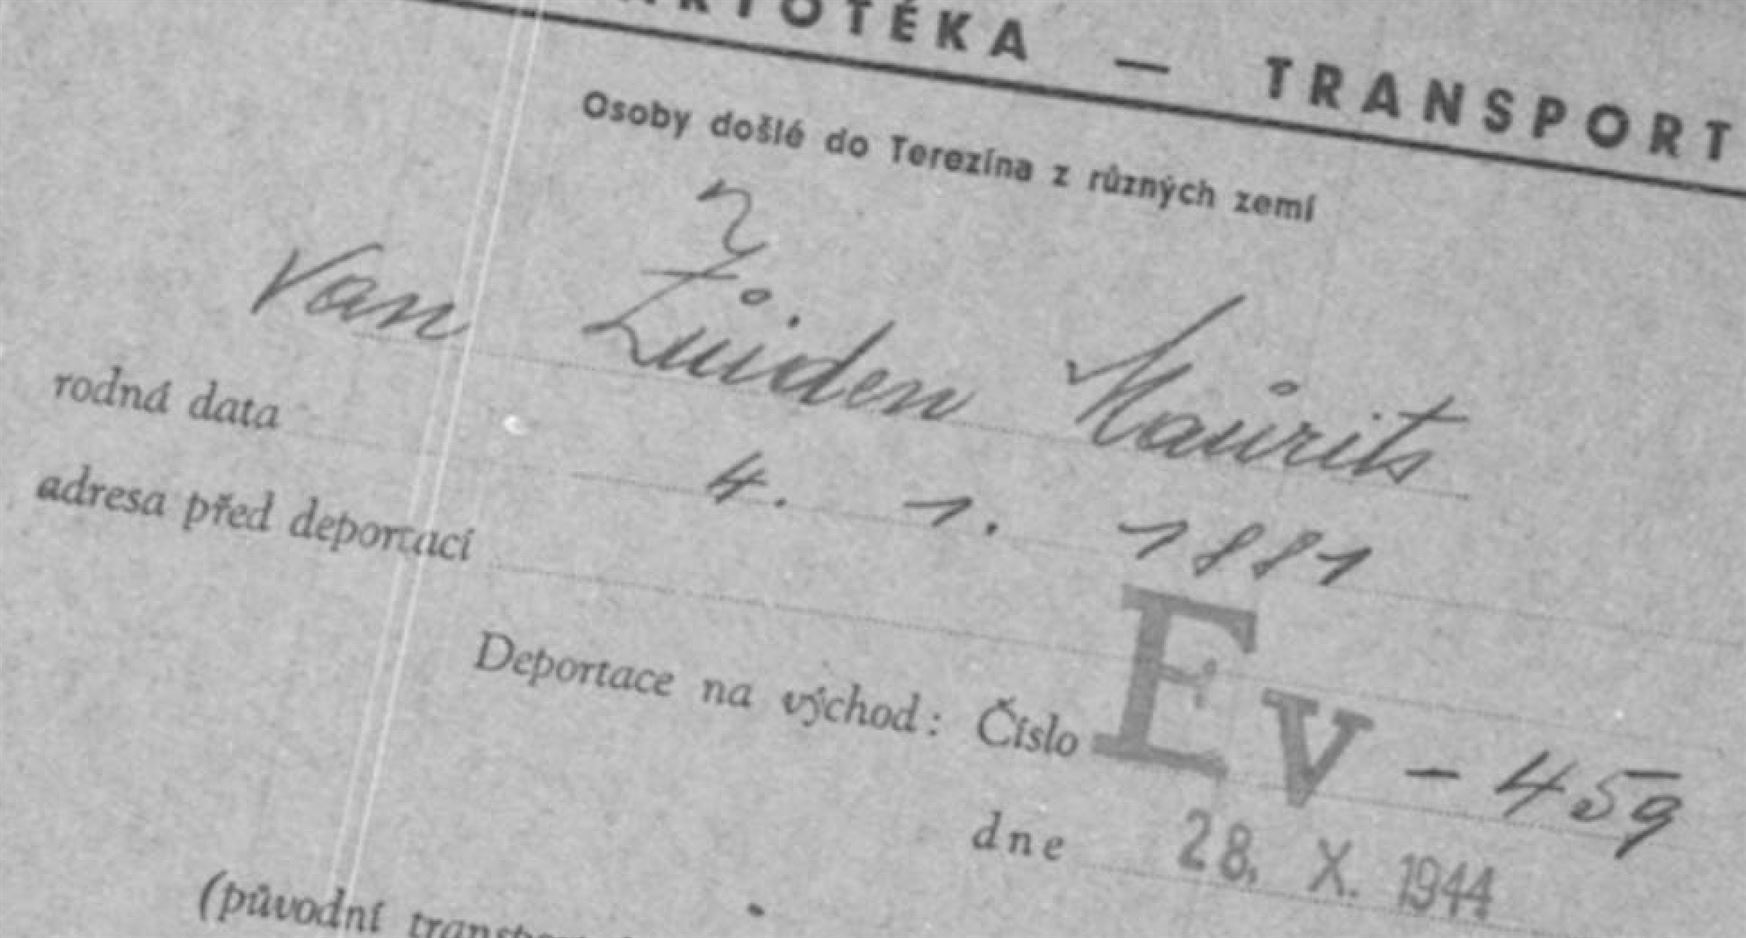 KARTOTÉKA — TRANSPORT
Osoby došlé do Terezína z různých zemí
Z
Van Zuiden Maurits
rodná data 4. 1. 1881
adresa před deportací
Deportace na východ: Číslo Ev - 459
dne 28. X. 1944
(původní